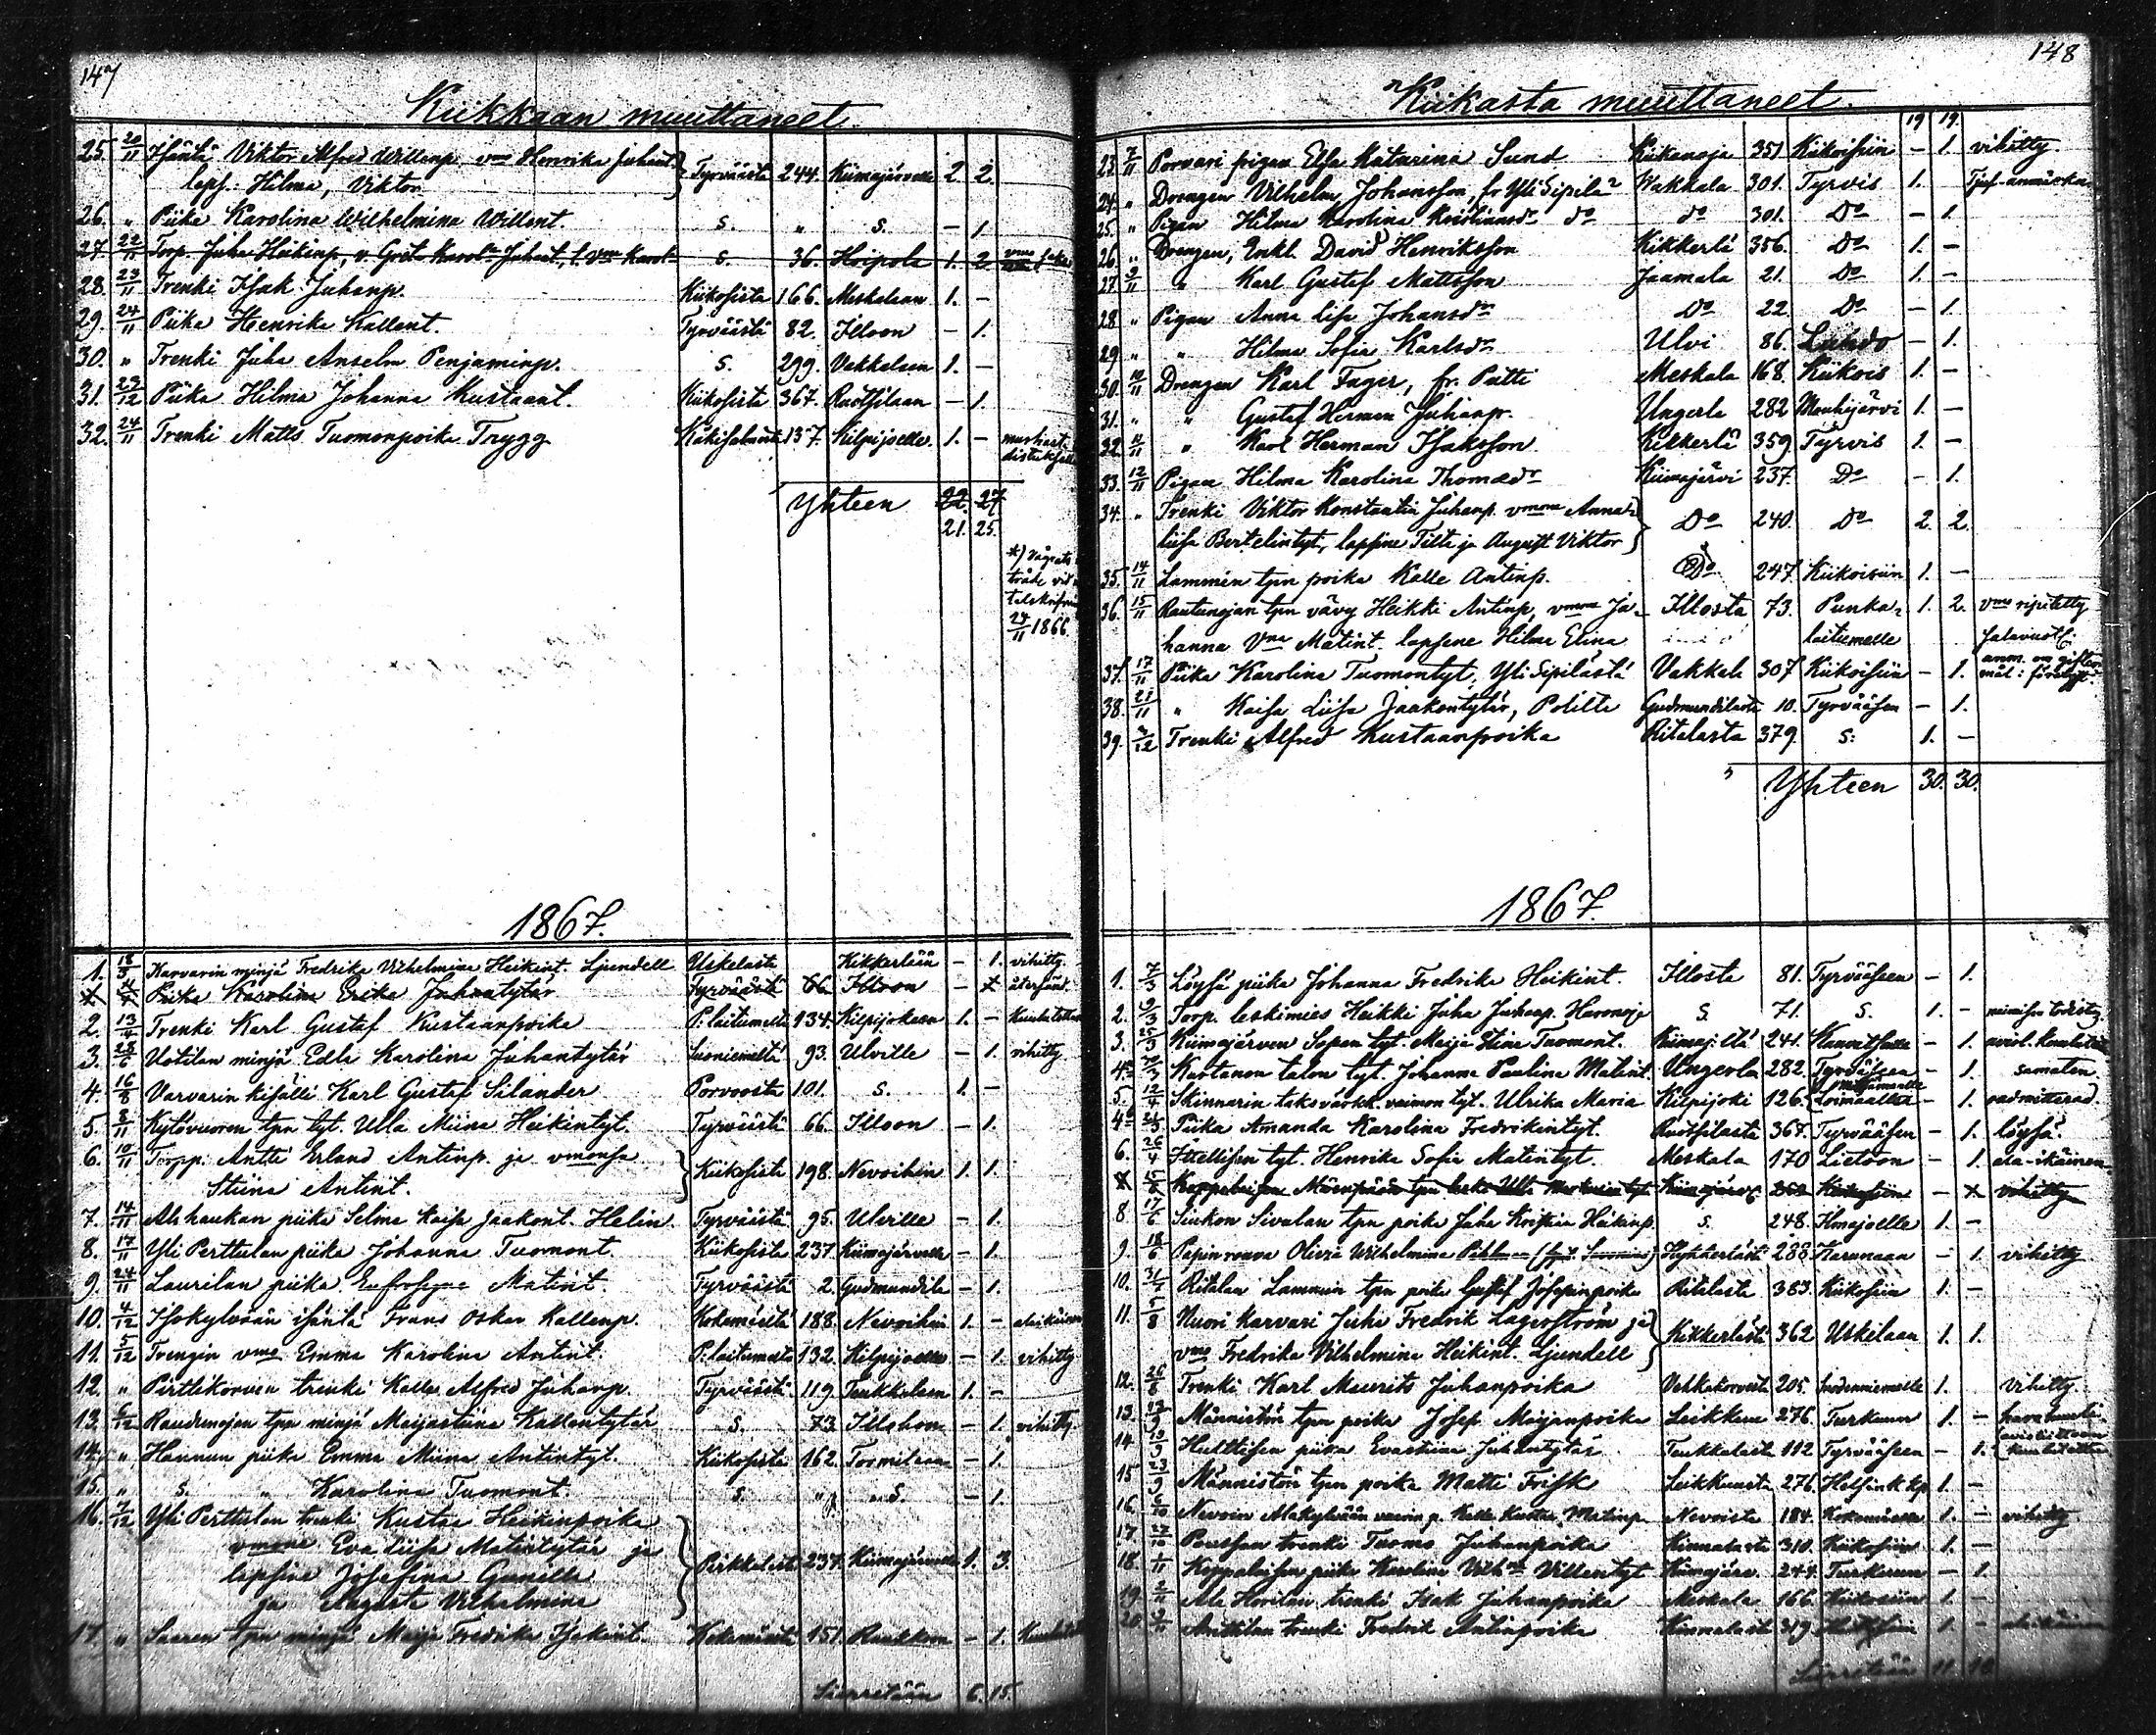 147
Kiikkaan muuttaneet
25. 20/11 Isäntä Viktor Alfred Willenp. vmo Henrika Juhant. Tyrväästä 244. Kiimajärvelle 2. 2.
laps. Hilma, Viktor
26. " Piika Karolina Wilhelmina Willent. s. " s. – 1.
27. 22/11 Torp. Juha Heikinp., v. Greta Karol. Juhant., l. Vma Karol. s. 36. Hoipola 1. 2
28. 23/11 Trenki Isak Juhanp. Kiikosista 166. Meskalaan 1. –
29. 24/11 Piika Henrika Kallent. Tyrväästä 82. Illoon – 1.
30. " Trenki Juha Anselm Penjaminp. s. 299. Vakkalaan 1. –
31. 29/12 Piika Hilma Johanna Kustaant. Kiikosista 367. Ruotsilaan – 1.
32. 24/11 Trenki Matts Tuomonpoika Trygg Käkisalmesta 137. Kilpijoelle. 1. –
Yhteen 22. 27.
21. 25.
24/11 1866
1867.
1. 18/3 Karvarin minjä Fredrika Vilhelmina Heikint. Ljundell Uskelasta Kikkerlään – 1. vihitty.
Piika Karolina Erika Juhantytär Tyrväästä 66. Illoon – återsänd.
2. 13/4 Trenki Karl Gustaf Kustaanpoika P:laitumelta 134. Kilpijokeen 1. –
3. 28/6 Uotilan minjä Edla Karolina Juhantytär Suoniemeltä 93. Ulville – 1. vihitty
4. 16/8 Varvarin kisälli Karl Gustaf Silander Porvoosta 101. s. 1. –
5. 8/11 Kytövuoren tpn tyt. Ulla Miina Heikintyt. Tyrväästä 66. Illoon – 1.
6. 10/11 Torpp. Antti Erland Antinp. ja vmonsa Kiikosista 198. Nevoihin 1. 1.
Stiina Antint.
7. 14/11 Ala haukan piika Selma Kaisa Jaakont. Helin. Tyrväästä 95. Ulville – 1.
8. 17/11 Yli Perttulan piika Johanna Tuomont. Kiikosista 237. Kiimajärvelle – 1.
9. 24/11 Laurilan piika Eufrosyne Matint. Tyrväästä 2. Gudmundila – 1.
10. 4/12 Isokylvään isäntä Frans Oskar Kallenp. Kokemäeltä 188. Nevoihin 1. –
11. 5/12 Trengin vmo Emma Karolina Antint. P:laitumelta 132. Kilpijoelle – 1. vihitty
12. " Pirttikorven trenki Kalle Alfred Juhanp. Tyrväästä 119. Teukkalaan 1. –
13. 6/12 Raudunojan tpn minjä Maijastiina Kallentytär s. 73. Illohon – 1. vihitty
14. " Hannun piika Emma Miina Antintyt. Kiikosista 162. Toomilaan – 1.
15. " s. " Karolina Tuomont. s. " s. – 1.
16. 7/12 Yli Perttulan trenki Kustaa Heikinpoika
vmone Eva Liisa Matintytär ja
lapsine Josefina Gunilla Pirkkalasta 237. Kiimajärvelle 1. 3.
ja Augusta Vilhelmina
17. " Saaren tpn minjä Maija Fredrika Isakint. Kokemäeltä 151. – 1.
Siirretään 6. 15.
148
Kiikasta muuttaneet.
23. 7/11 Porvari pigan Elsa Katarina Sund Kiikanoja 351 Kiikoisiin – 1. vihitty
24. " Drengen Vilhelm Johansson, fr Yli Sipilä Wakkala 301. Tyrvis 1.
25. " Pigan Hilma Karolina Kristiansdr do do 301. Do – 1.
26. " Drengen, Enkl. David Henriksson Kikkerlä 356. Do 1. –
27. 9/11 " Karl Gustaf Mattsson Jaamala 21. Do 1. –
28. " Pigan Anna Lisa Johansdr Do 22. Do – 1.
29. " " Hilma Sofia Karlsdr Ulvi 86. Lundo – 1.
30. 10/11 Drengen Karl Fager, fr. Putti Meskala 168. Kiikois 1. –
31. " " Gustaf Herman Juhanp. Ungerla 282 Mouhijärvi 1. –
32. 11/11 " Karl Herman Isaksson Kikkerlä 359. Tyrvis 1. –
33. 12/11 Pigan Hilma Karolina Thomædr Kiimajärvi 237. Do – 1.
34. " Trenki Viktor Konstantin Juhanp. vmone Anna Do 240. Do 2. 2.
liisa Bertelintyt, lapsine Tilta ja August Viktor
35. 14/11 Lammin tpn poika Kalle Antinp. Do 247. Kiikoisiin 1. –
36. 15/11 Rautunojan tpn vävy Heikki Antinp, vmone Jo- Illosta 73. Punka- 1. 2. vmo ripitetty
hanna Vma Matint. lapsene Hilma Elina laitumelle
37. 17/11 Piika Karolina Tuomontyt, Yli Sipilästä Vakkala 307 Kiikoisiin – 1.
38. 21/11 " Kaisa Liisa Jaakontytär, Polilta Gudmundilasta 10. Tyrvääsen – 1.
39. 3/12 Trenki Alfred Kustaanpoika Ritalasta 379. s: 1. –
Yhteen 30. 30.
1867.
1. 7/3 Löysä piika Johanna Fredrika Heikint. Illosta 81. Tyrvääseen – 1.
2. 9/3 Torp. leskimies Heikki Juha Juhanp. Haronoja s. 71. s. 1. –
3. 25/3 Kiimajärven Sopen tyt. Maija Stina Tuomont. Kiimaj:ltä 241. – 1.
4. Kartanon talon tyt. Johanna Paulina Matint. Ungerla 282. Tyrvääseen – 1. samaten.
5. 12/4 Skinnarin taksvärkk. vaimon tyt. Ulrika Maria Kilpijoki 126. – 1. admitterad.
Piika Amanda Karolina Fredrikintyt. Ruotsilasta 367. Tyrvääsen – 1. löysä.
6. 26/4 Ittellisen tyt. Henrika Sofia Matintyt. Meskala 170 Lietoon – 1. ala-ikäinen
vihitty
8 17/6 Sinkon Sivulan tpn poika Juha Heikinp. s. 248. Ilmajoelle 1. –
9. 18/6 Papin rouva Olivia Wilhelmina 288. Karunaan – 1. vihitty
10. 31/7 Ritalan Lammin tpn poika Gustaf Josepinpoika Ritalasta 383. Kiikosiin 1. –
11. 5/8 Nuori karvari Juha Fredrik Lagerström ja Kikkerlästä 362 Uskelaan 1. 1.
vmo Fredrika Vilhelmina Heikint. Ljundell
12. 26/8 Trenki Karl Maurits Juhanpoika 205. 1. vihitty
13. Männistön tpn poika Josep Maijanpoika Leikkuu 276. Turkuun 1. –
14. Huittisen piika Evastiina Juhantytär Teukkalasta 112 Tyrvääseen – 1.
15 23/9 Männistön tpn poika Matti Frisk Leikkuusta 276. Helsink. kp. 1. –
16. Nevoin Alakylvään vaarin p. Kalle Kustaa Matinp. Nevoista 184. Kokemäelle 1. – vihitty
17. trenki Tuomo Juhanpoika Kinnalasta 310. Kiikosiin 1. –
18. 1/11 Koppalaisen piika Karolina Vilhma Villentyt Kiimajärv. 244. Turkuun – 1.
19. 2/11 Ala Horilan trenki Isak Juhanpoika Meskala 166. Kiikosiin 1. –
20. Anttilan trenki Fredrik Antinpoika Kinnalasta 319 1. –
Siirretään 11. 10